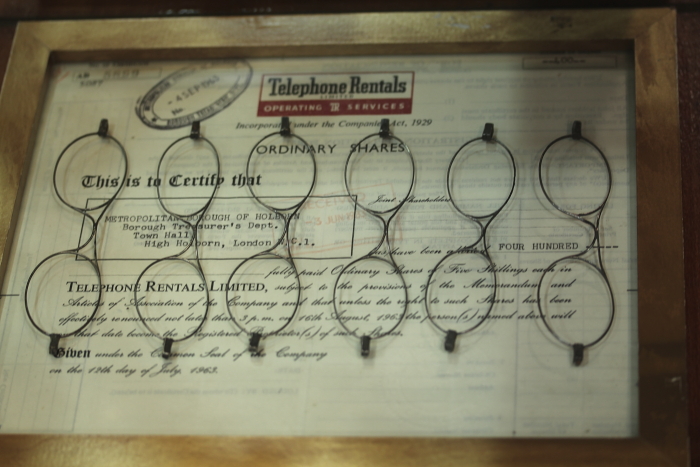 4 SEP 1963
Telephone Rentals
LIMITED
OPERATING TR SERVICES
Incorporated under the Companies Act, 1929
ORDINARY SHARES
This is to Certify that
Joint Shareholders
METROPOLITAN BOROUGH OF HOLBORN
Borough Treasurer's Dept.
Town Hall
High Holborn, London W.C.1.
has/have been allotted FOUR HUNDRED
fully paid Ordinary Shares of Five Shillings each in
TELEPHONE RENTALS LIMITED, subject to the provisions of the Memorandum and
Articles of Association of the Company and that unless the right to such Shares has been
effectively renounced not later than 3 p.m. on 16th August, 1963 the person(s) named above will
on that date become the Registered Proprietor(s) of such Shares.
Given under the Common Seal of the Company
on the 12th day of July, 1963.